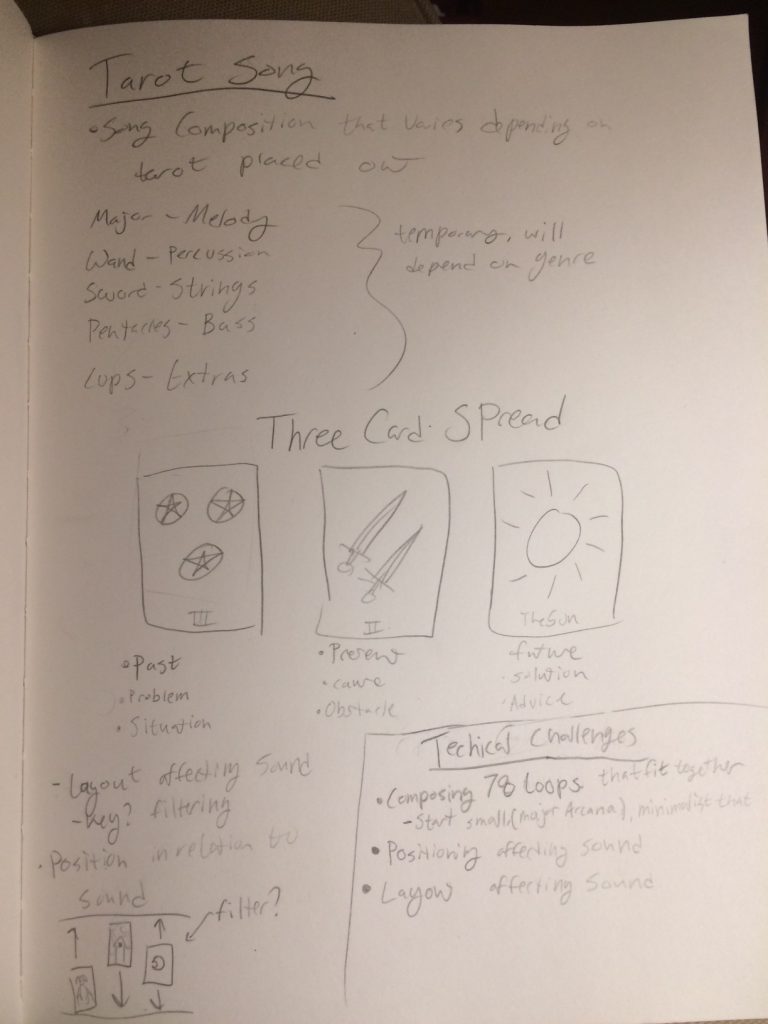 Tarot Song
• Song Composition that varies depending on
tarot placed out
Major - Melody
Wand - Percussion
Sword - Strings
Pentacles - Bass
Cups - Extras
temporary, will
depend on genre
Three Card Spread
III
II
The Sun
• Past
• Problem
• Situation
• Present
• cause
• Obstacle
• future
• solution
• Advice
- Layout affecting Sound
- key? filtering
• Position in relation to
sound
filter?
Techical Challenges
• Composing 78 Loops that fit together
- Start small (major Arcana), minimalist that
• Positioning affecting sound
• Layout affecting Sound